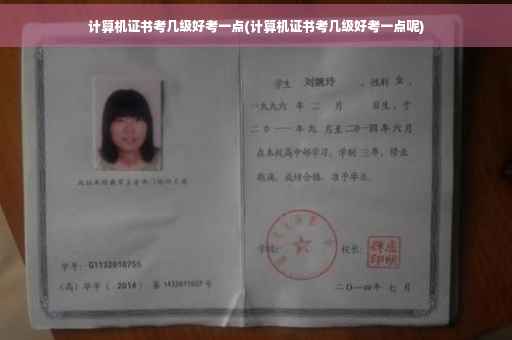 计算机证书考几级好考一点(计算机证书考几级好考一点呢)
学生 刘婉玲 ，性别 女 ，
一九九六 年 二 月 日生，于
二〇一一年 九 月至二〇一四年 六 月
在本校高中部学习，学制 三年，修业
期满，成绩合格，准予毕业。
学校： 校长：
学号： G1132010755
(高) 毕字 ( 2014 ) 第 1432011027 号
二〇一四年 七 月